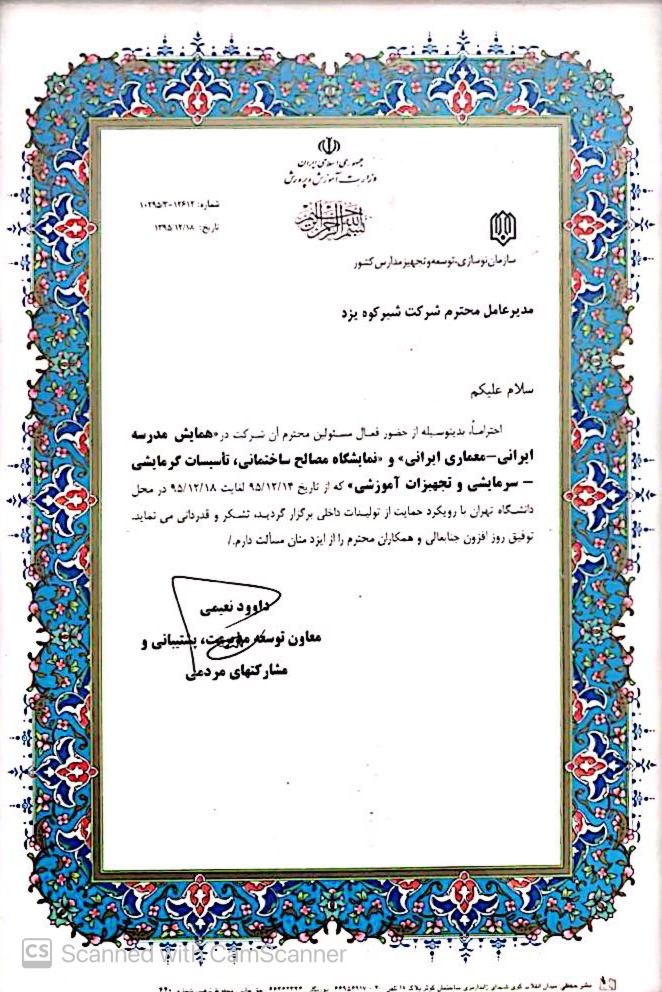 جمهوری اسلامی ایران
وزارت آموزش و پرورش
بسم الله الرحمن الرحیم
شماره: ۱۰۲۹۵/۳-۱۲۶۱۲
تاریخ: ۱۳۹۵/۱۲/۱۸
سازمان نوسازی، توسعه و تجهیز مدارس کشور
مدیرعامل محترم شرکت شیرکوه یزد
سلام علیکم
احتراماً، بدینوسیله از حضور فعال مسئولین محترم آن شرکت در «همایش مدرسه
ایرانی-معماری ایرانی» و «نمایشگاه مصالح ساختمانی، تأسیسات گرمایشی
– سرمایشی و تجهیزات آموزشی» که از تاریخ ۹۵/۱۲/۱۴ لغایت ۹۵/۱۲/۱۸ در محل
دانشگاه تهران با رویکرد حمایت از تولیدات داخلی برگزار گردید، تشکر و قدردانی می نماید.
توفیق روز افزون جنابعالی و همکاران محترم را از ایزد منان مسألت دارم./
داوود نعیمی
معاون توسعه مدیریت، پشتیبانی و
مشارکتهای مردمی
CS Scanned with CamScanner